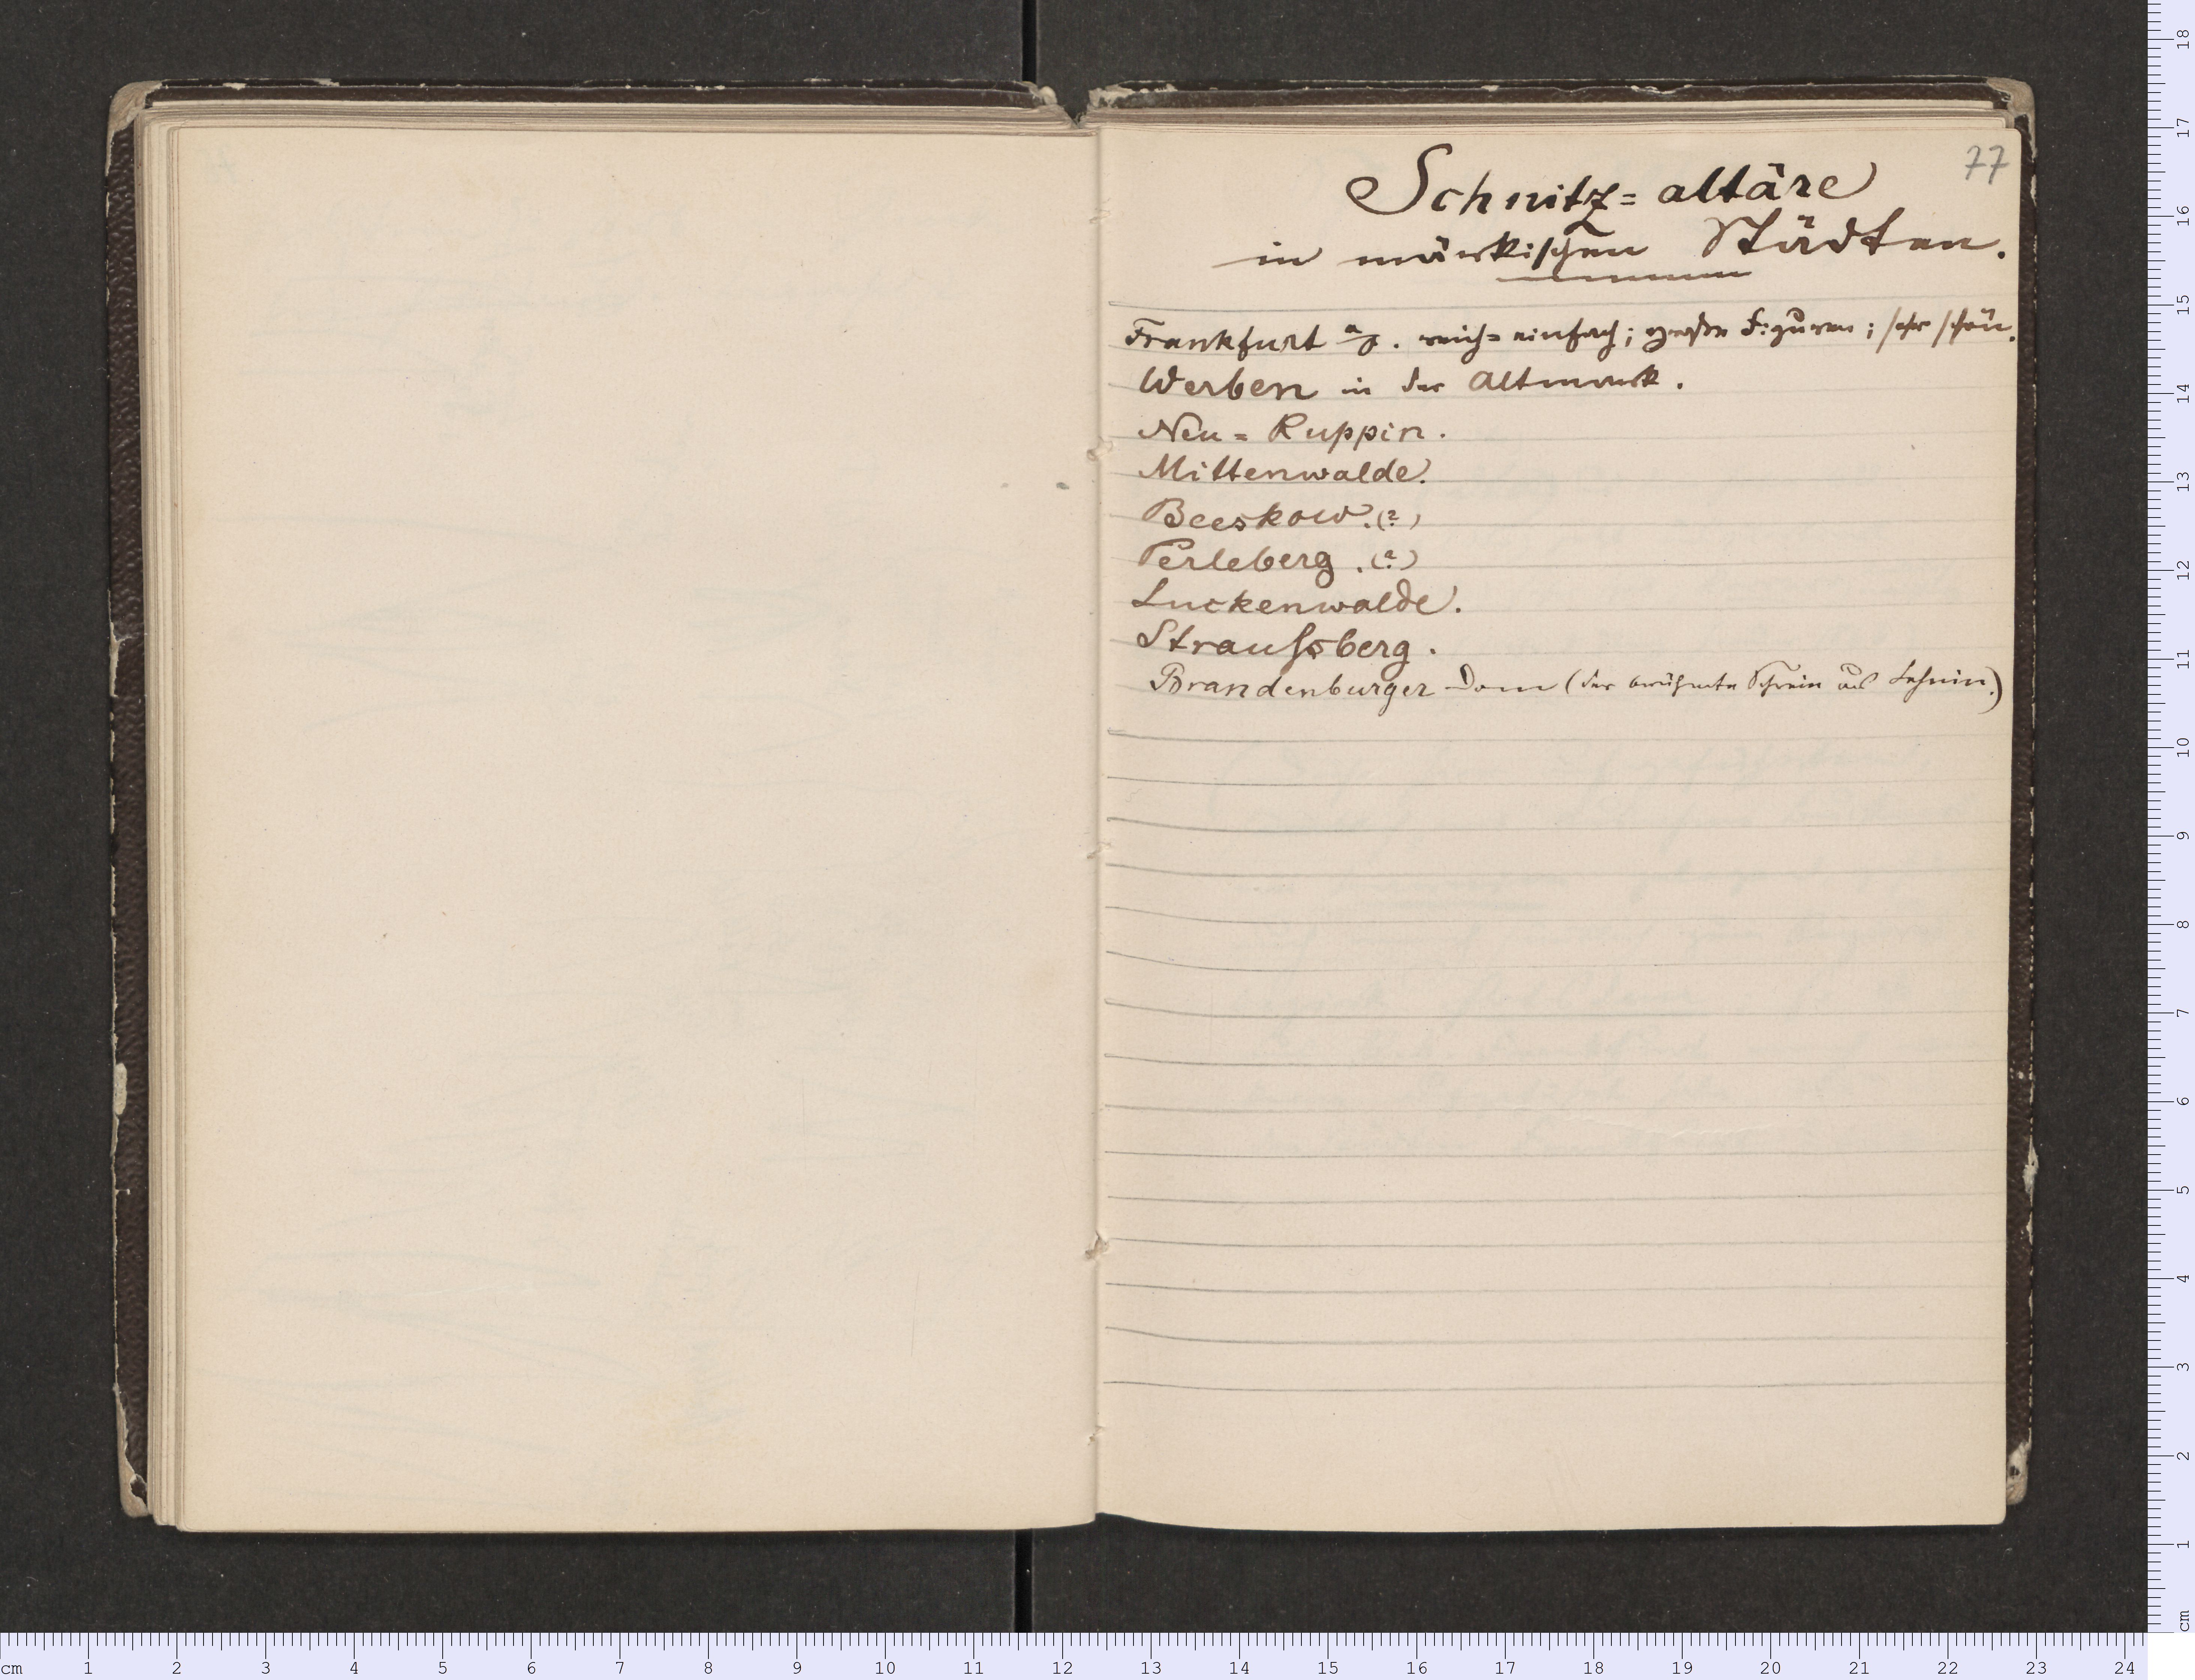 77
Schnitz=altäre
in märkischen Städten.
Frankfurt a/O. reich= einfach; große Figuren; sehr schön.
Werben in der Altmark.
Neu=Ruppin.
Mittenwalde.
Beeskow.(?)
Perleberg.(?)
Luckenwalde.
Straußberg.
Brandenburger Dom (der berühmte Schrein aus Lehnin.)
cm 1 2 3 4 5 6 7 8 9 10 11 12 13 14 15 16 17 18 19 20 21 22 23 24
18
17
16
15
14
13
12
11
10
9
8
7
6
5
4
3
2
1
cm